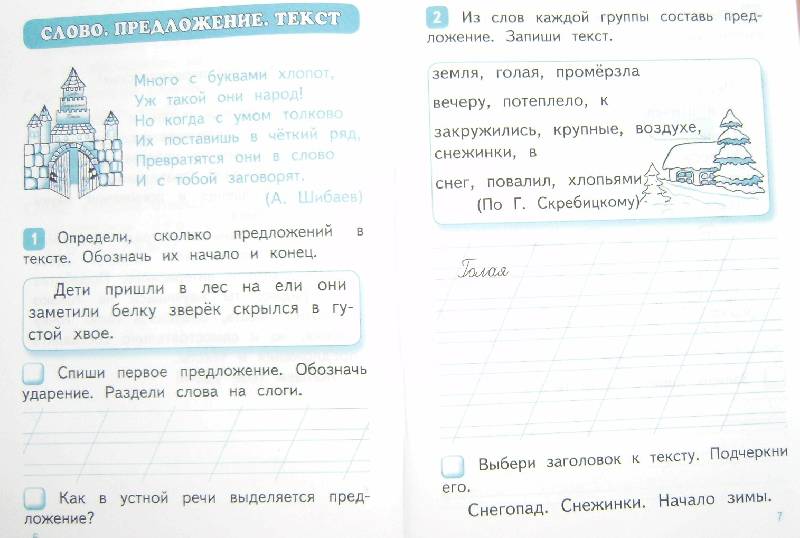 СЛОВО. ПРЕДЛОЖЕНИЕ. ТЕКСТ
Много с буквами хлопот,
Уж такой они народ!
Но когда с умом толково
Их поставишь в чёткий ряд,
Превратятся они в слово
И с тобой заговорят.
(А. Шибаев)
1 Определи, сколько предложений в
тексте. Обозначь их начало и конец.
Дети пришли в лес на ели они
заметили белку зверёк скрылся в гу-
стой хвое.
Спиши первое предложение. Обозначь
ударение. Раздели слова на слоги.
Как в устной речи выделяется пред-
ложение?
6
2 Из слов каждой группы составь пред-
ложение. Запиши текст.
земля, голая, промёрзла
вечеру, потеплело, к
закружились, крупные, воздухе,
снежинки, в
снег, повалил, хлопьями
(По Г. Скребицкому)
Голая
Выбери заголовок к тексту. Подчеркни
его.
Снегопад. Снежинки. Начало зимы.
7